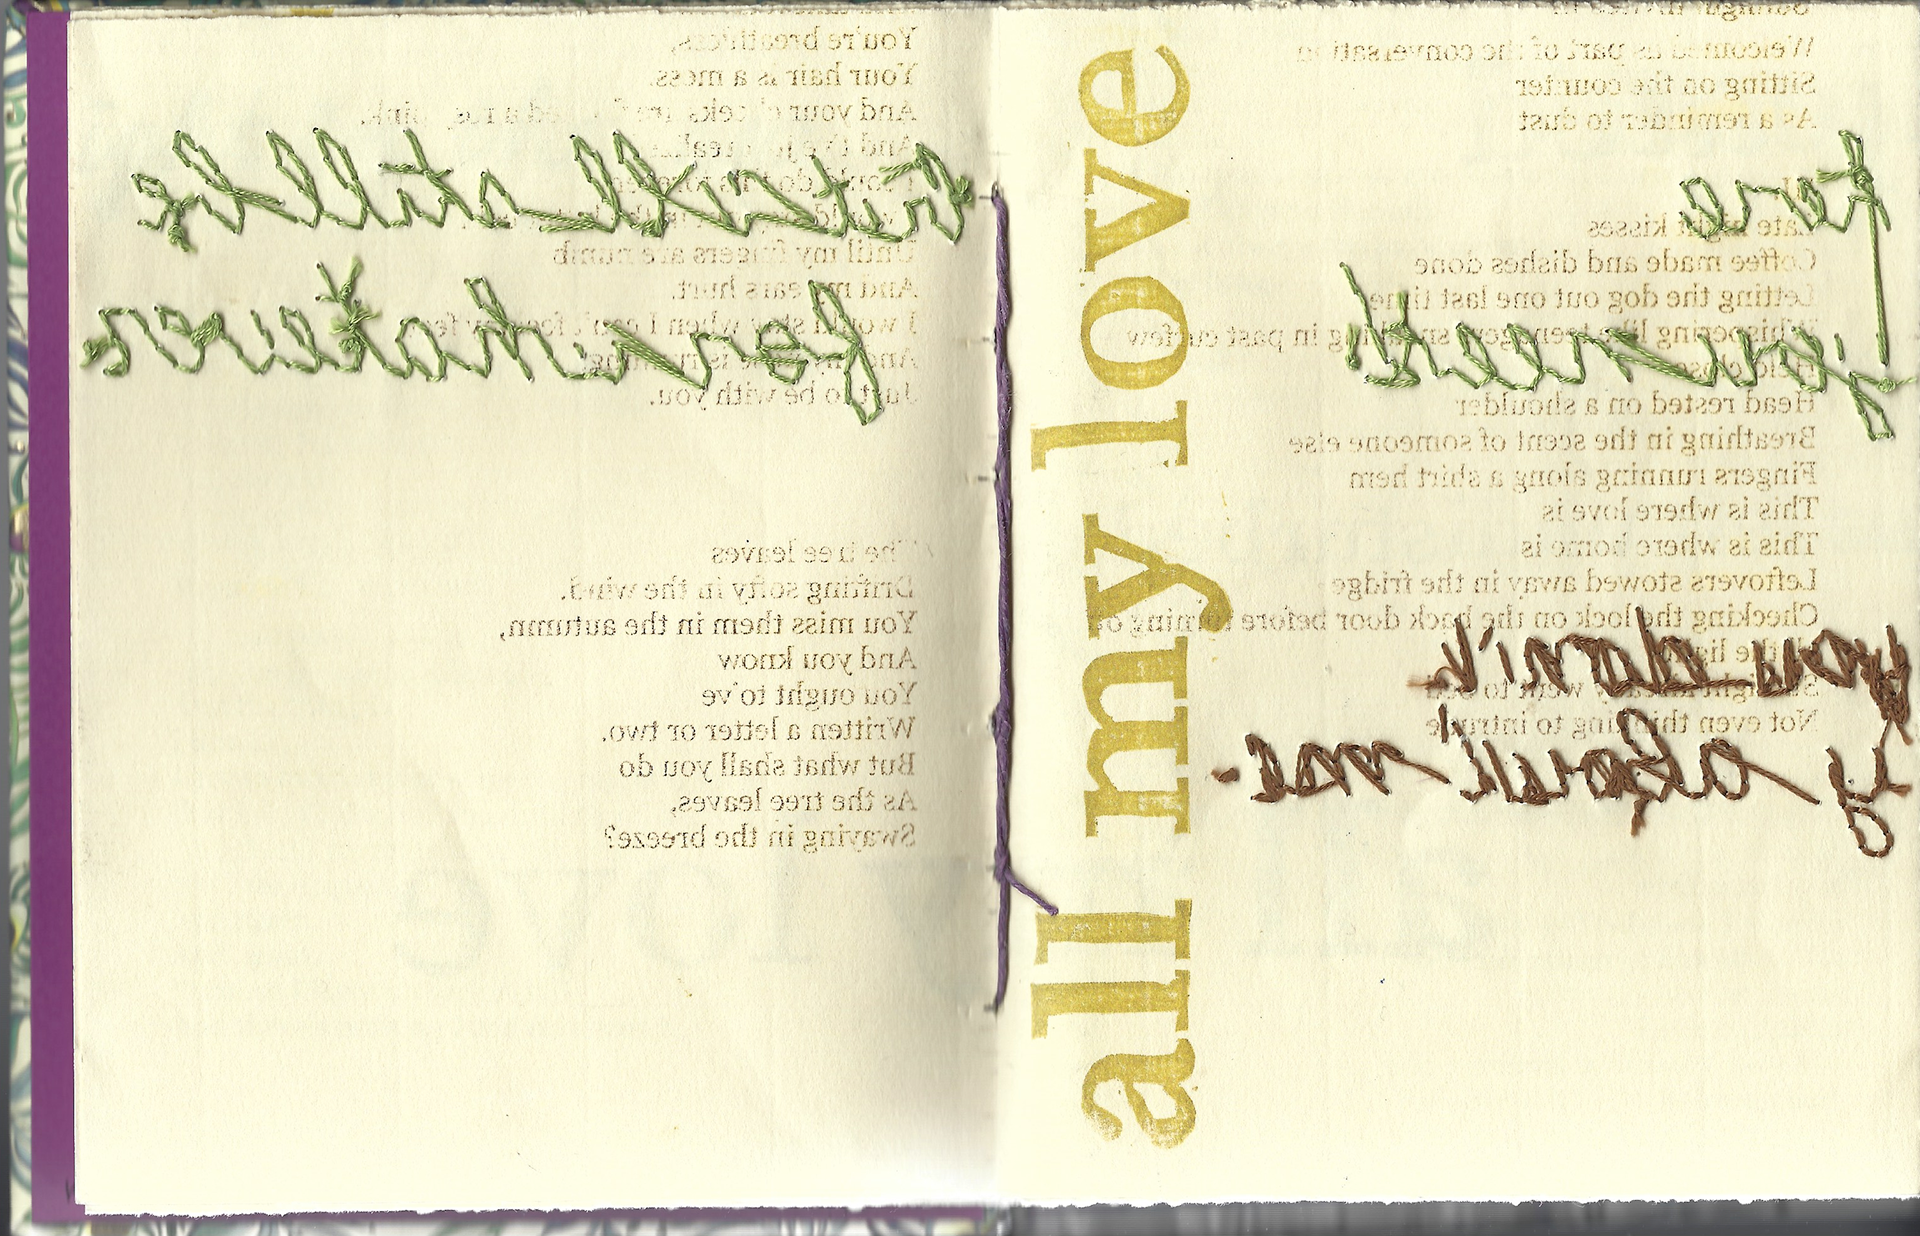 You're breathless,
Your hair is a mess.
And your cheeks are flushed a rosy pink.
And I've just
I could do this
Until my fingers are numb
And my ears hurt.
I would stay when I can't feel my
And my is
Just to be with you.
still be
for whatever
The tree leaves
Drifting softly in the wind.
You miss them in the autumn,
And you know
You ought to've
Written a letter or two.
But what shall you do
As the tree leaves,
Swaying in the breeze?
all my love
Welcomed as part of the conversation
Sitting on the counter
As a reminder to dust
Late night kisses
Coffee made and dishes done
Letting the dog out one last time
Whispering like teenagers sneaking in past curfew
Held close
Head rested on a shoulder
Breathing in the scent of someone else
Fingers running along a shirt hem
This is where love is
This is where home is
Leftovers stowed away in the fridge
Checking the lock on the back door before turning
the
already went to bed
Not even thinking to intrude
you need
about me.